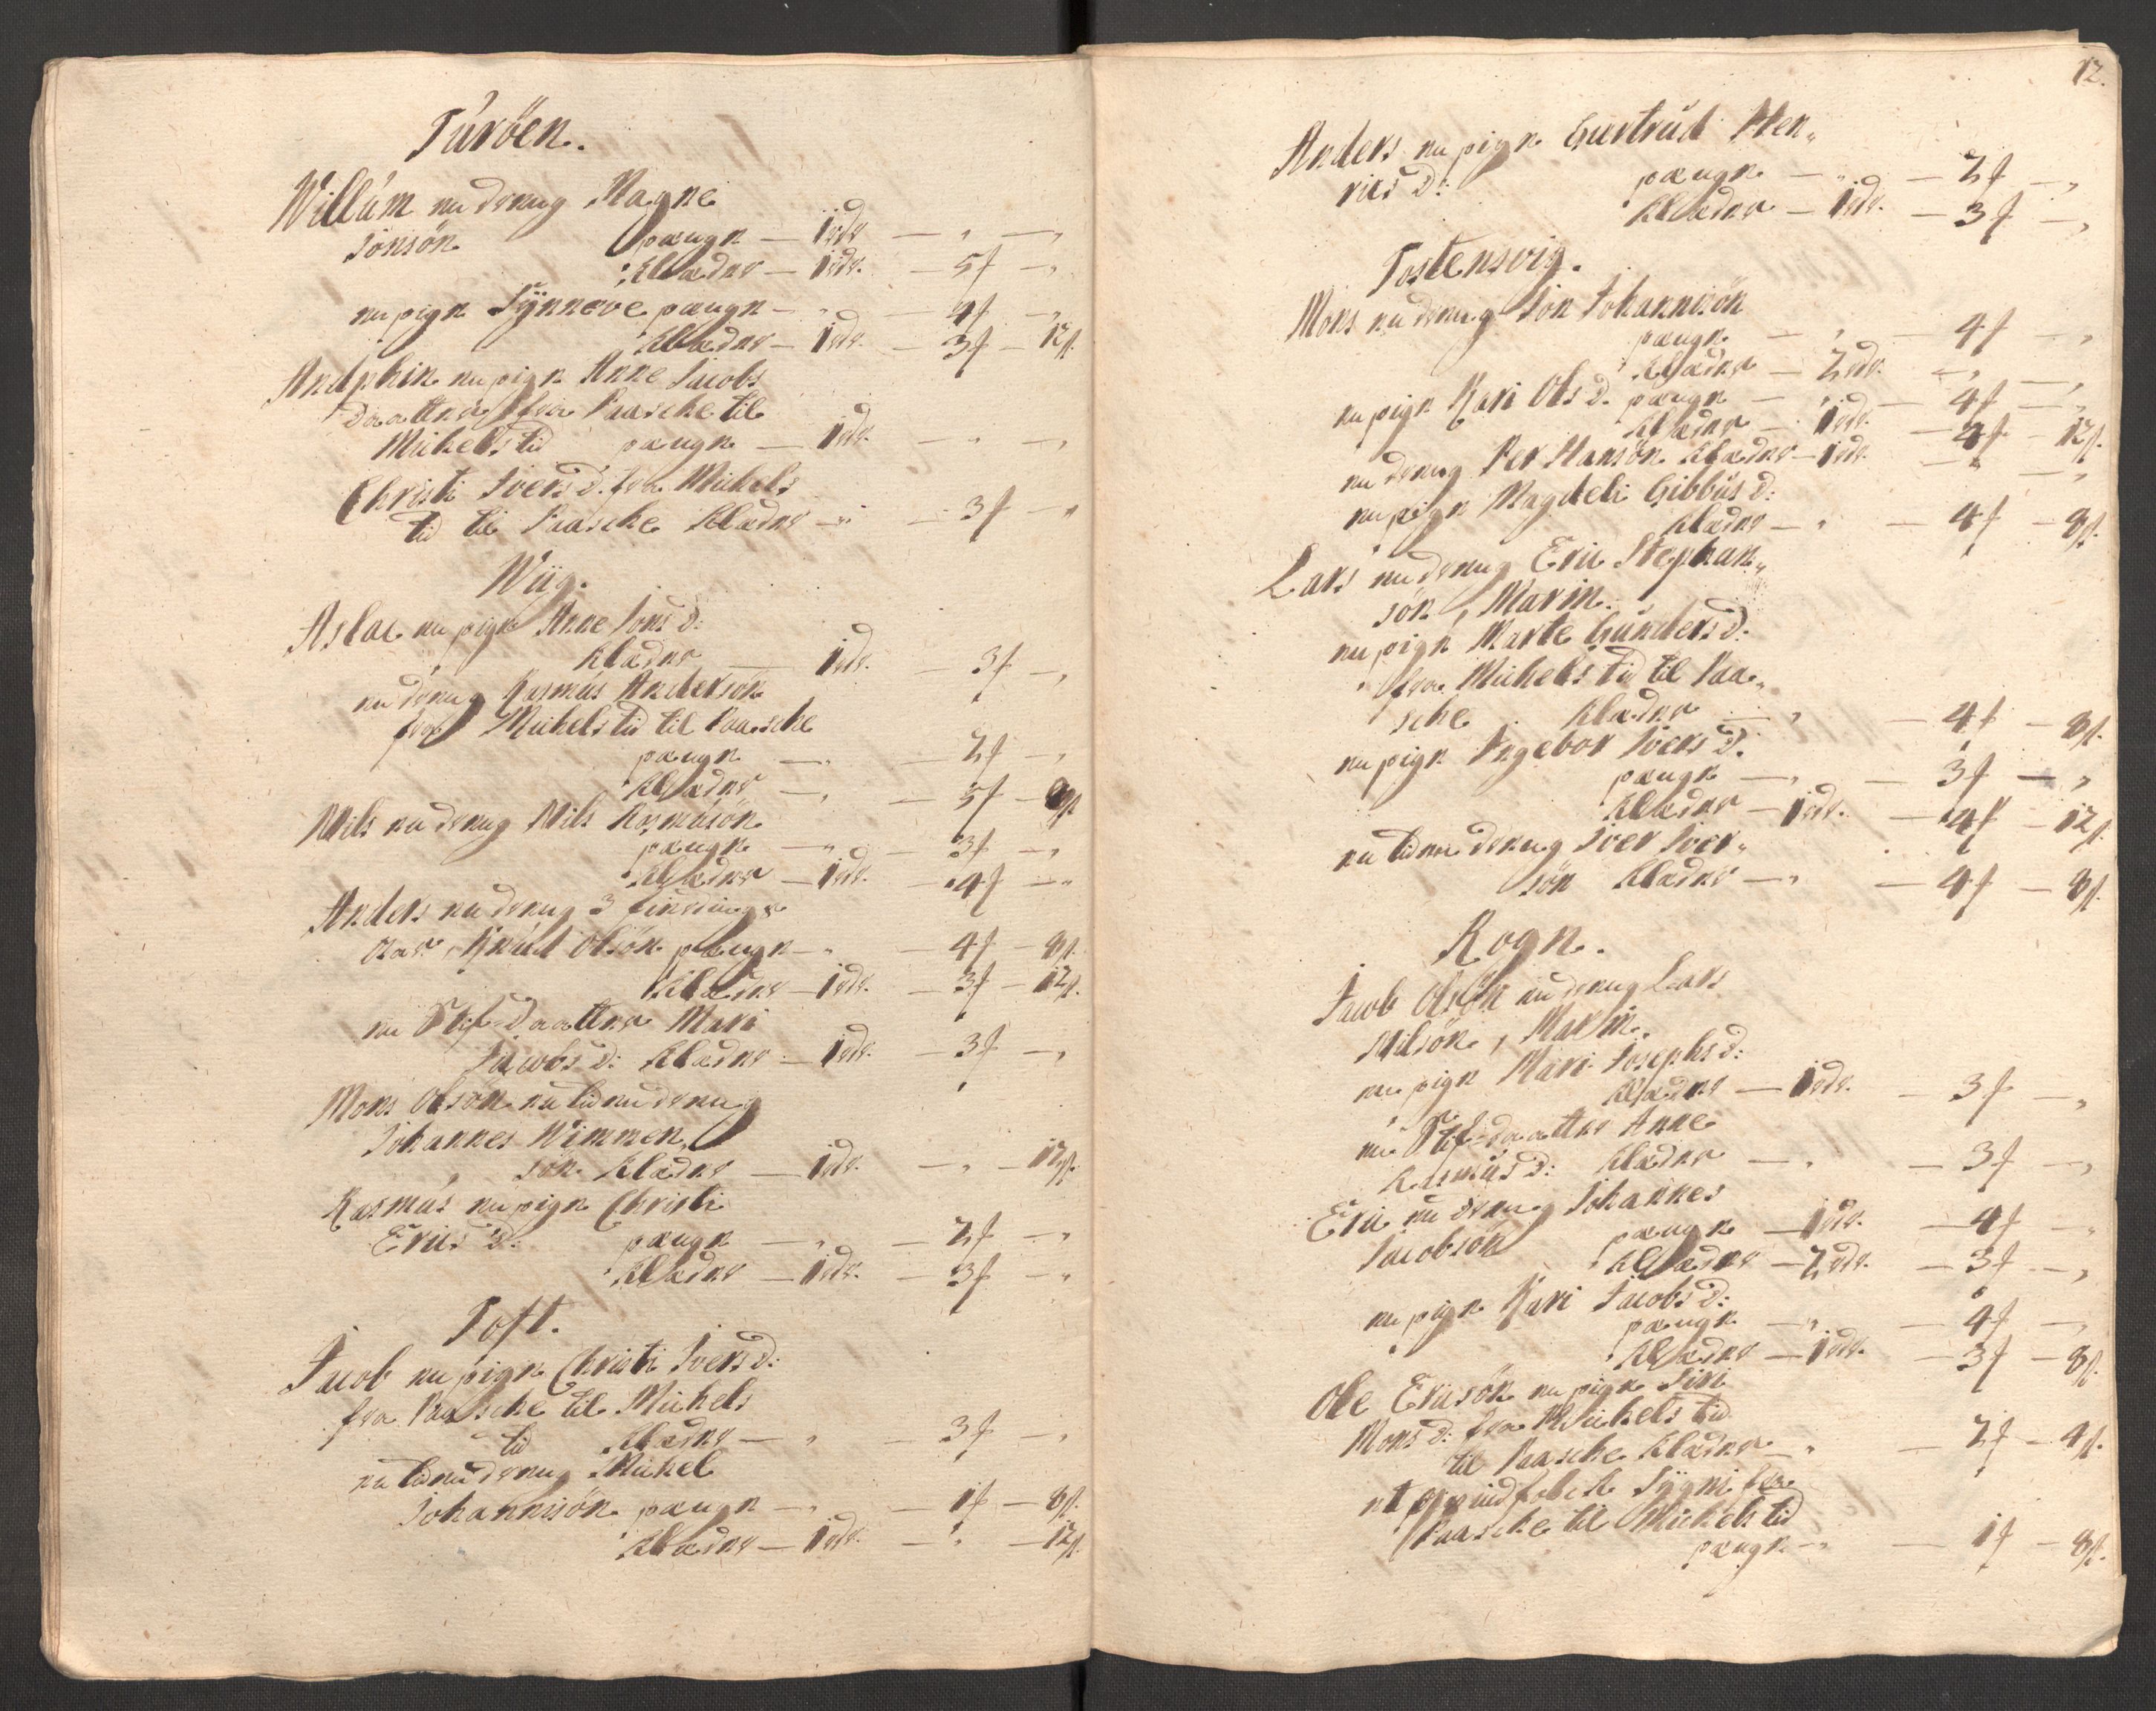 Turöen.
Willum en dreng Magne
Jonsön pænge — 1 rdr — " — "
Klæder — 1 rdr. — 5 f — "
en pige Synneve pænge — " — 4 f — "
Klæder — 1 rdr. — 3 f — 12 s.
Andphin en pige Anne Jacobs
daatter fra Paasche til
Michels tid pænge — 1 rdr. — " — "
Christi Ivers d. fra Michels
tid til Paasche Klæder — " — 3 f — "
Wiig.
Aslac en pige Anne Jons d:
Klæder — 1 rdr. — 3 f — "
en dreng Rasmus Andersön
fra Michels tid til Paasche
pænge — " — 2 f — "
Klæder — " — 5 f — 8 s
Nils en dreng Nils Rasmusön
pænge — " — 3 f — "
Klæder — 1 rdr. — 4 f — "
Anders en dreng 3 fierdings
Aar, Knud Olsön pænge — " — 4 f — 8 s.
Klæder — 1 rdr. — 3 f — 12 s.
en Stif-Daatter Mari
Jacobs d: Klæder — 1 rdr. — 3 f — "
Mons Olsön en liden dreng
Johannes Wimmen
sön Klæder — 1 rdr. — " — 12 s.
Rasmus en pige Christi
Erics d: pænge — " — 2 f — "
Klæder — 1 rdr. — 3 f — "
Toft.
Jacob en pige Christi Ivers d:
fra Paasche til Michels
tid Klæder — " — 3 f — "
en liden dreng Michel
Johannisön pænge — " — 1 f — 8 s.
Klæder — 1 rdr. — " — 12 s.
12.
Anders en pige Giertrud Hen„
rics d: pænge — " — 2 f — "
Klæder — 1 rdr. — 3 f — "
Tostensvig.
Mons en dreng Jon Johannisön
pænge — " — 4 f — "
Klæder — 2 rdr. — " — "
en pige Kari Ols d. pænge — " — 4 f — "
Klæder — 1 rdr. — 4 f — 12 s.
en dreng Per Hansön Klæder — 1 rdr. — " — "
en pige Magdeli Gibbus d:
Klæder — " — 4 f — 8 s.
Lars en dreng Eric Stephan„
sön, Marin.
en pige Marte Gunders d:
fra Michels tid til Paa„
sche Klæder — " — 4 f — 8 s.
en pige Ingebor Ivers d.
pænge — " — 3 f — "
Klæder — 1 rdr. — 4 f — 12 s.
en liden dreng Iver Iver„
sön Klæder — " — 4 f — 8 s.
Rogn.
Jacob Olsön en dreng Lars
Nilsön, Marin.
en pige Mari Josephs d:
Klæder — 1 rdr. — 3 f — "
en Stif-daatter Anne
Rasmus d: Klæder — " — 3 f — "
Eric en dreng Johannes
Jacobsön pænge — 1 rdr. — 4 f — "
Klæder — 2 rdr. — 3 f — "
en pige Kari Jacobs d:
pænge — " — 4 f — "
Klæder — 1 rdr. — 3 f — 8 s.
Ole Ericsön en pige Siri
Mons d: fra Michels tid
til Paasche Klæder — " — 2 f — 4 s.
et qvindfolck Sygni fra
Paasche til Michels tid
pænge — " — 1 f — 8 s.